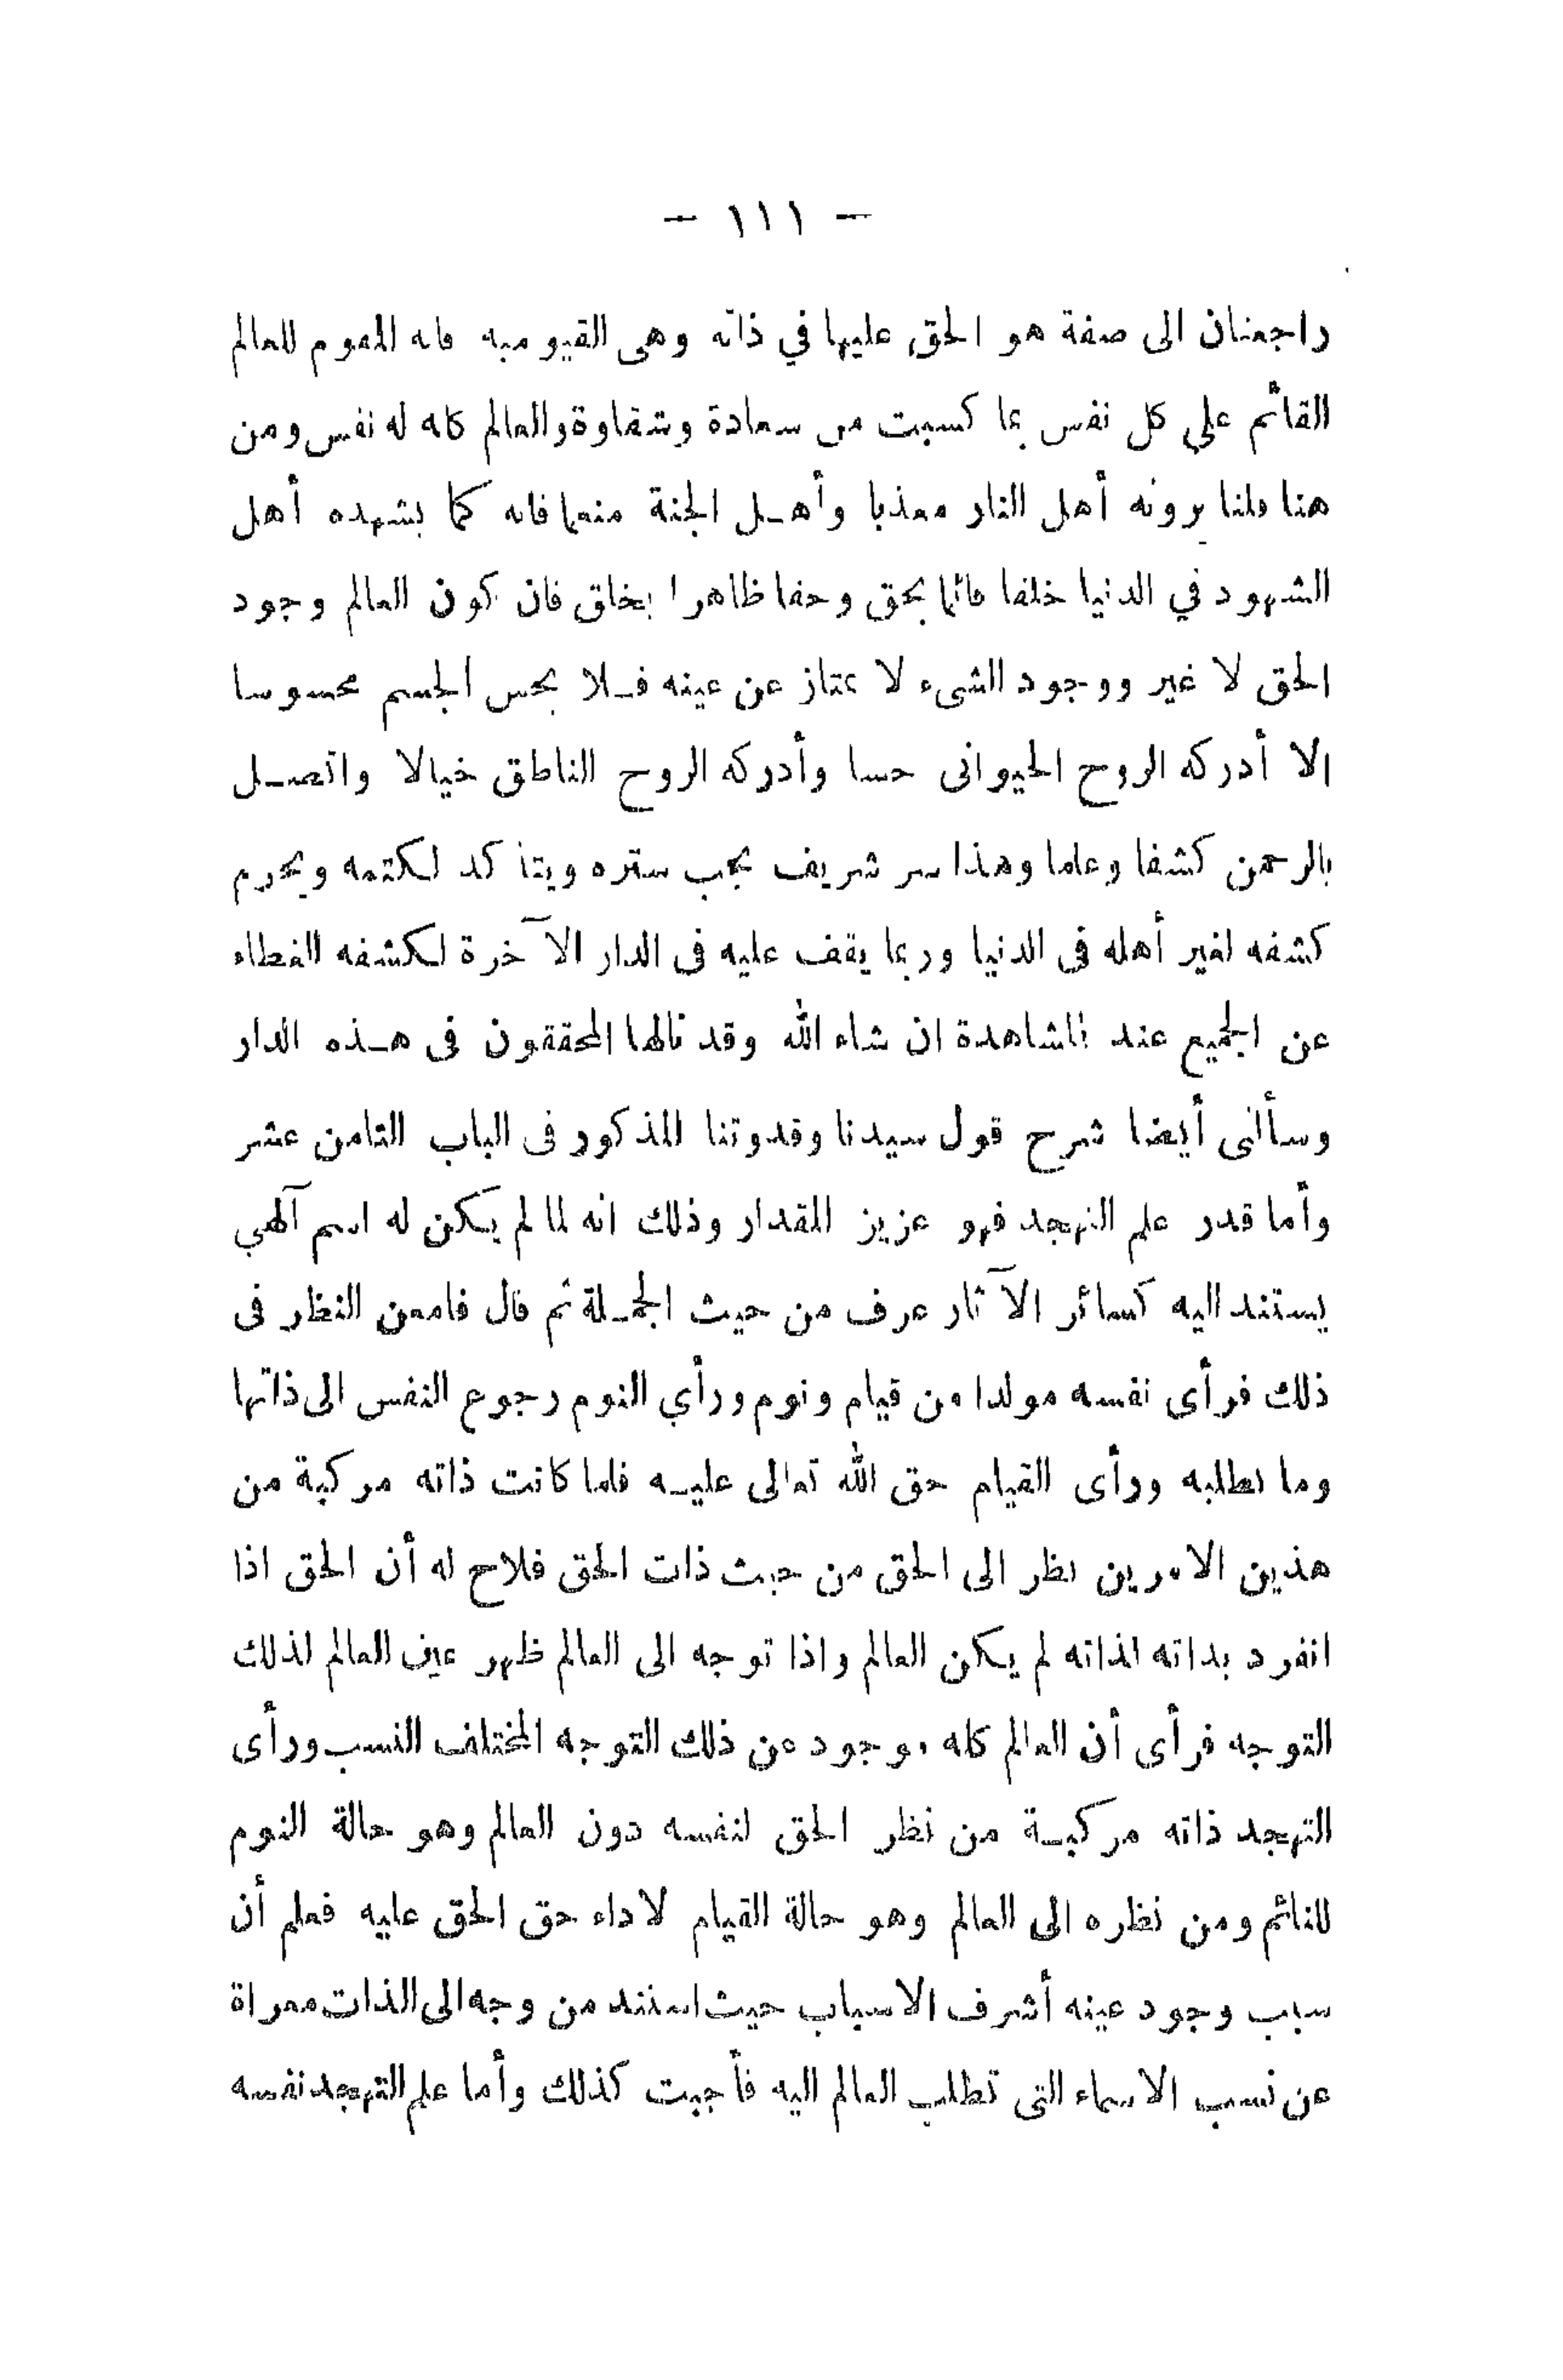 — ١١١ —
راجعتان الى صفة هو الحق عليها في ذاته وهى القيومية فانه المقوم للعالم
القائم على كل نفس بما كسبت من سعادة وشقاوة والعالم كله له نفس ومن
هنا قلنا يرونه أهل النار معذبا وأهل الجنة منعما فانه كما يشهده أهل
الشهود في الدنيا خلقا قائما بحق وحقا ظاهرا بخلق فان كون العالم وجود
الحق لا غير ووجود الشىء لا يمتاز عن عينه فلا يحس الجسم محسوسا
الا أدركه الروح الحيوانى حسا وأدركه الروح الناطق خيالا واتصل
بالرحمن كشفا وعلما وهذا سر شريف يجب ستره ويتأكد لكتمه ويحرم
كشفه لغير أهله فى الدنيا وربما يقف عليه فى الدار الآخرة لكشفه الغطاء
عن الجميع عند المشاهدة ان شاء الله وقد نالها المحققون فى هذه الدار
وسألنى أيضا شرح قول سيدنا وقدوتنا المذكور فى الباب الثامن عشر
وأما قدر علم التهجد فهو عزيز المقدار وذلك انه لما لم يكن له اسم آلهي
يستند اليه كسائر الآثار عرف من حيث الجملة ثم قال فامعن النظر فى
ذلك فرأى نفسه مولدا من قيام ونوم ورأي النوم رجوع النفس الى ذاتها
وما تطلبه ورأى القيام حق الله تعالى عليه فلما كانت ذاته مركبة من
هذين الامرين نظر الى الحق من حيث ذات الحق فلاح له أن الحق اذا
انفرد بذاته لذاته لم يكن العالم واذا توجه الى العالم ظهر عين العالم لذلك
التوجه فرأى أن العالم كله موجود عن ذلك التوجه المختلف النسب ورأى
التهجد ذاته مركبة من نظر الحق لنفسه دون العالم وهو حالة النوم
للنائم ومن نظره الى العالم وهو حالة القيام لاداء حق الحق عليه فعلم أن
سبب وجود عينه أشرف الاسباب حيث استند من وجه الى الذات معراة
عن نسب الاسماء التى تطلب العالم اليه فأجبت كذلك وأما علم التهجد نفسه